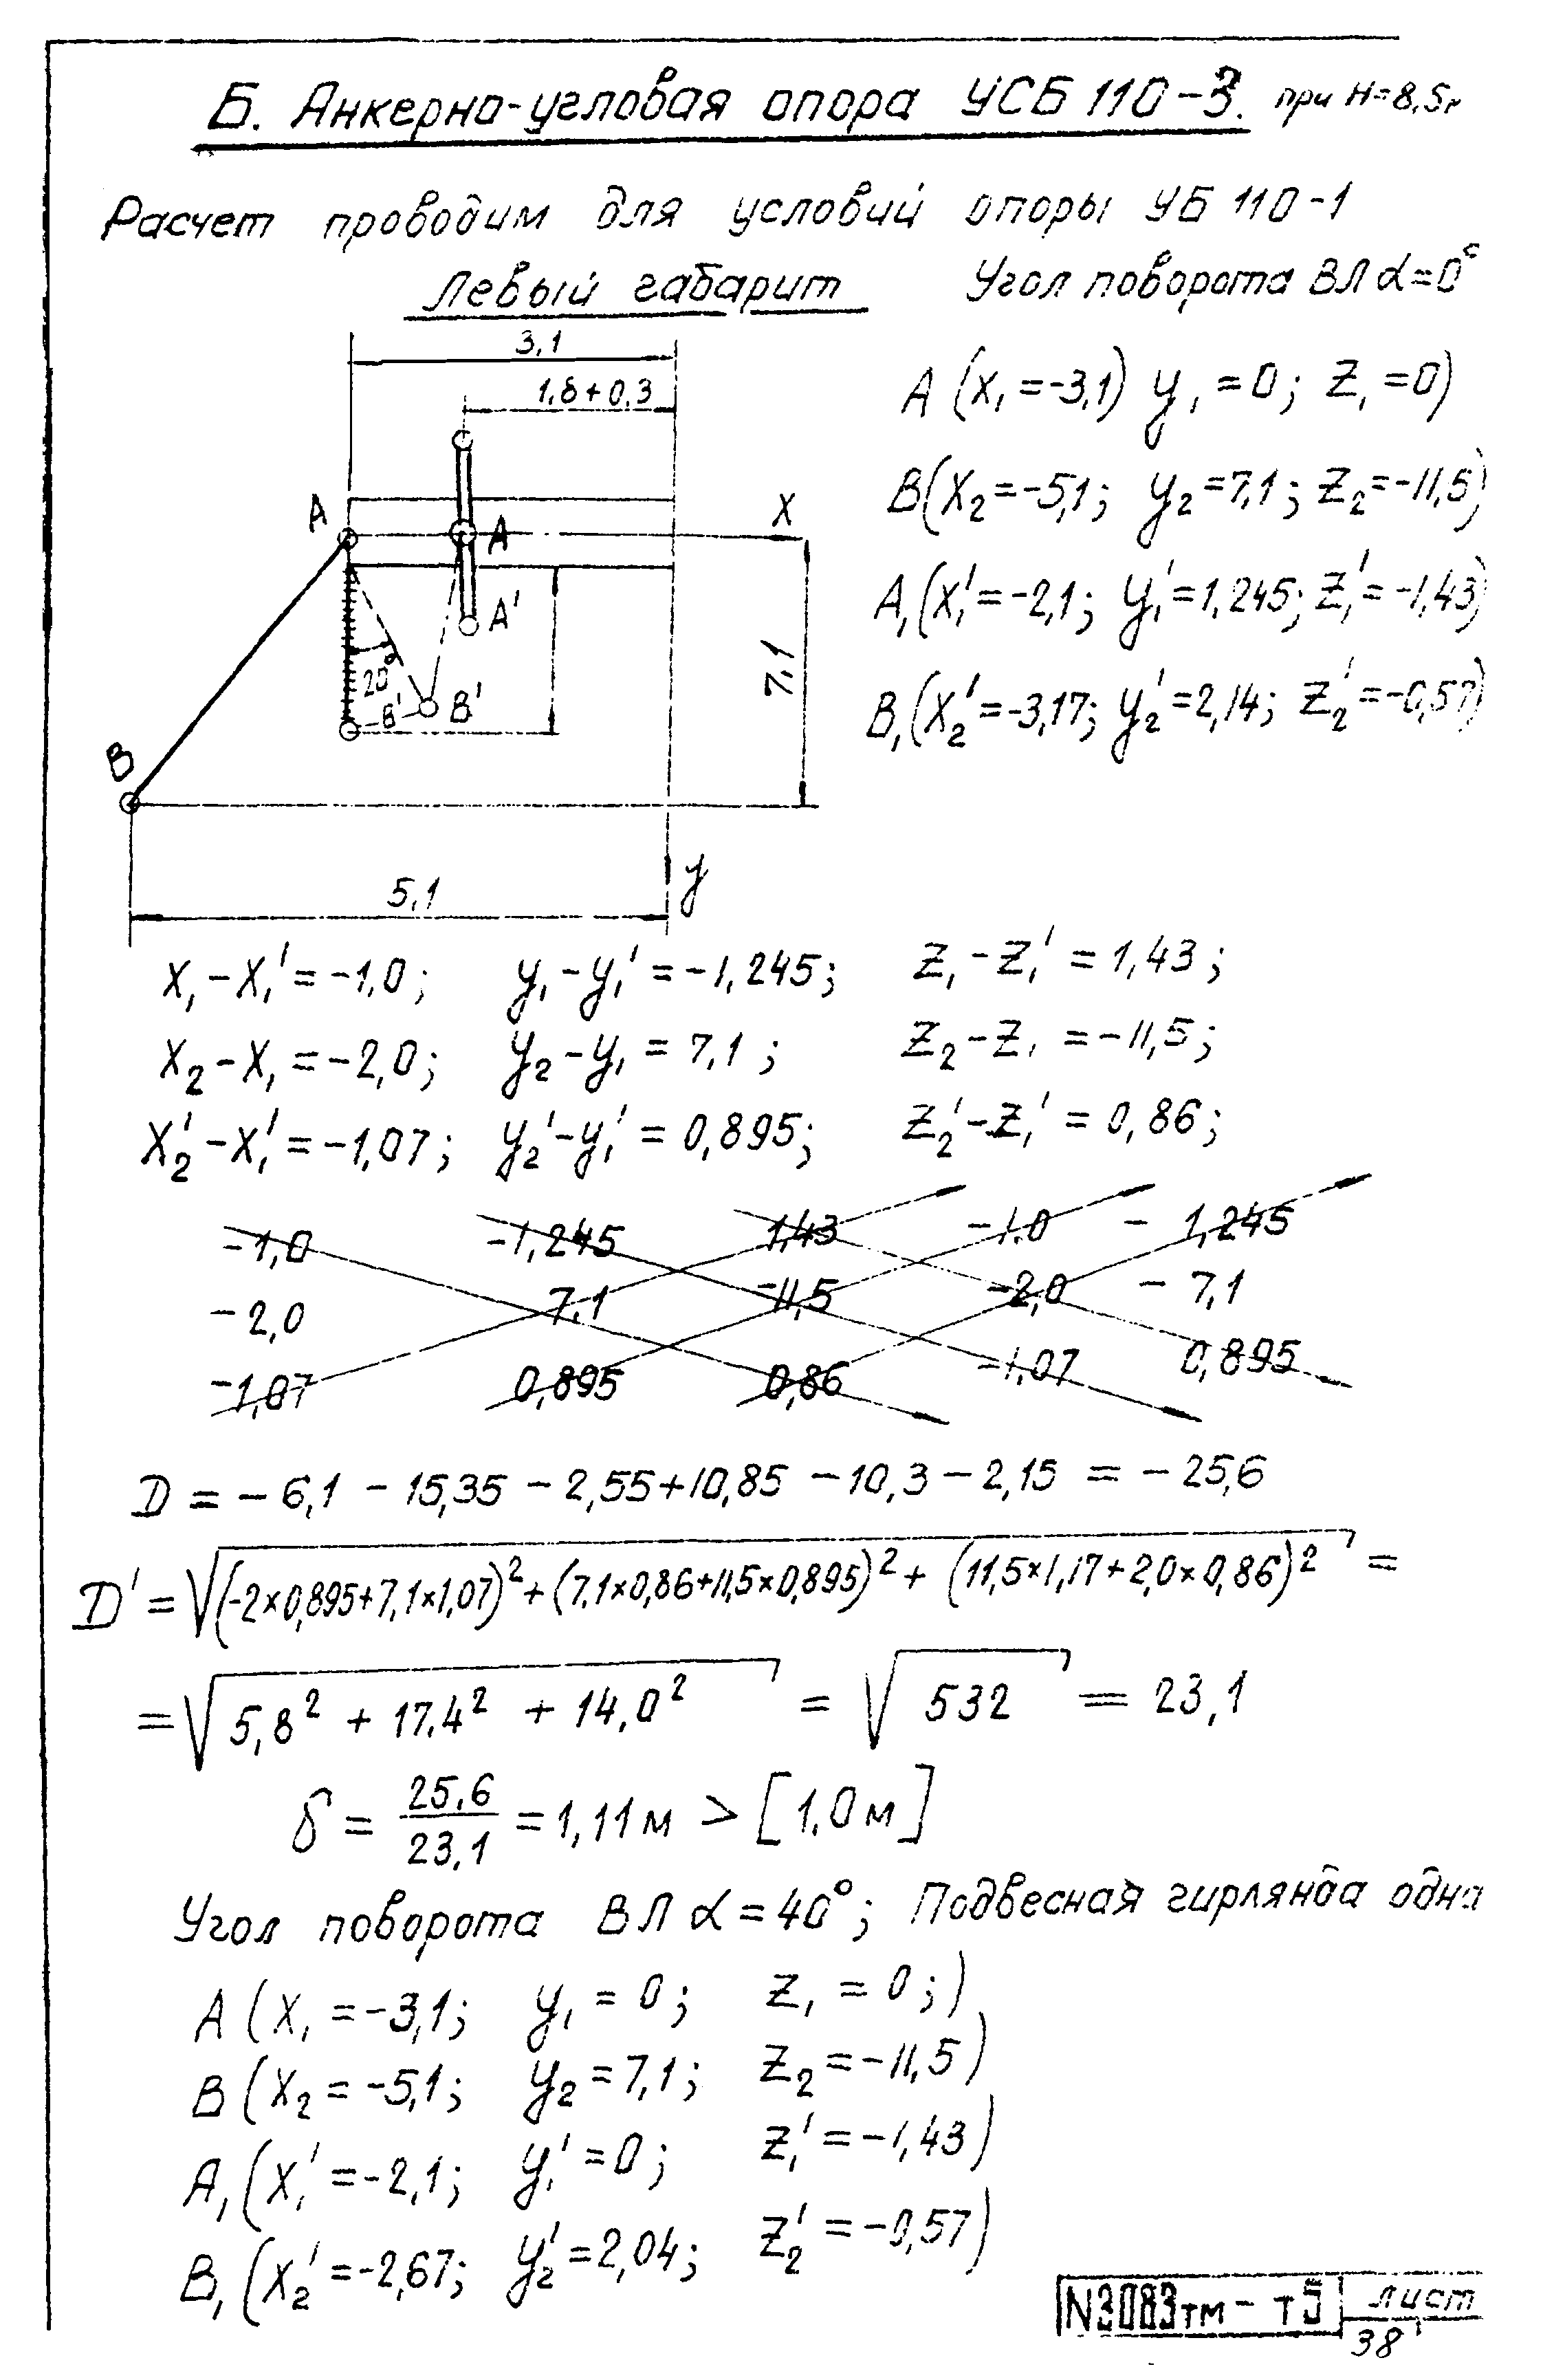 Б. Анкерно-угловая опора УСБ 110-3. при H=8,5г
Расчет проводим для условий опоры УБ 110-1
Левый габарит Угол поворота ВЛ α=0°
3,1
1,8+0,3
A (x₁=-3,1) y₁=0; z₁=0)
B(x₂=-5,1; y₂=7,1; z₂=-11,5)
A₁(x₁'=-2,1; y₁'=1,245; z₁'=-1,43)
B₁(x₂'=-3,17; y₂'=2,14; z₂'=-0,57)
A
A
X
A'
20°
B'
B'
7,1
B
y
5,1
x₁-x₁'=-1,0; y₁-y₁'=-1,245; z₁-z₁'=1,43;
x₂-x₁=-2,0; y₂-y₁=7,1; z₂-z₁=-11,5;
x₂'-x₁'=-1,07; y₂'-y₁'=0,895; z₂'-z₁'=0,86;
-1,0 -1,245 1,43 -1.0 - 1,245
-2,0 7,1 -11,5 -2,0 - 7,1
-1,07 0,895 0,86 -1,07 0,895
D = - 6,1 - 15,35 - 2,55+10,85 - 10,3 - 2,15 = - 25,6
D' = √(-2×0,895+7,1×1,07)² + (7,1×0,86+11,5×0,895)² + (11,5×1,17+2,0×0,86)² =
= √5,8² + 17,4² + 14,0² = √532 = 23,1
δ = 25,6/23,1 = 1,11м > [1,0м]
Угол поворота ВЛ α=40°; Подвесная гирлянда одна
A (x₁=-3,1; y₁=0; z₁=0;)
B (x₂=-5,1; y₂=7,1; z₂=-11,5)
A₁(x₁'=-2,1; y₁'=0; z₁'=-1,43)
B₁(x₂'=-2,67; y₂'=2,04; z₂'=-0,57)
N3083тм-т5 лист
38